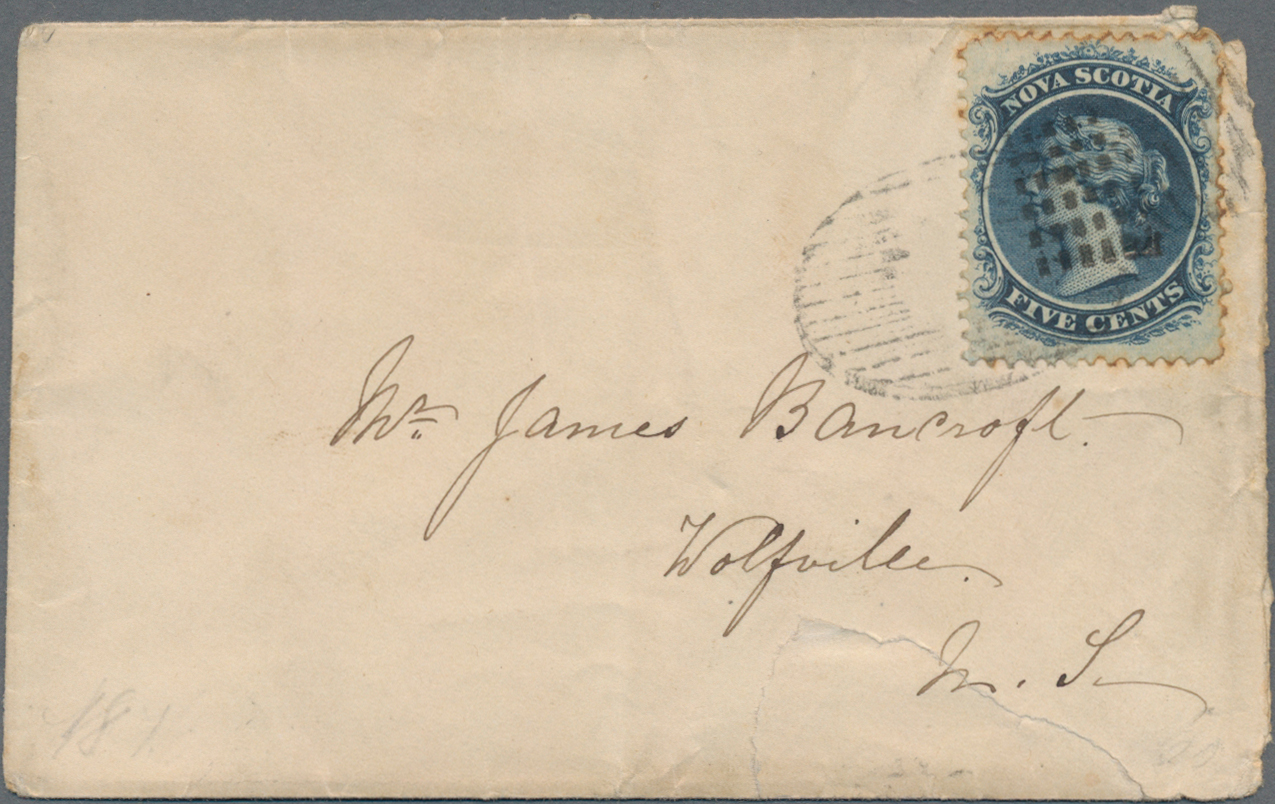 NOVA SCOTIA
FIVE CENTS
Mr. James Bancroft.
Wolfville.
N. S.